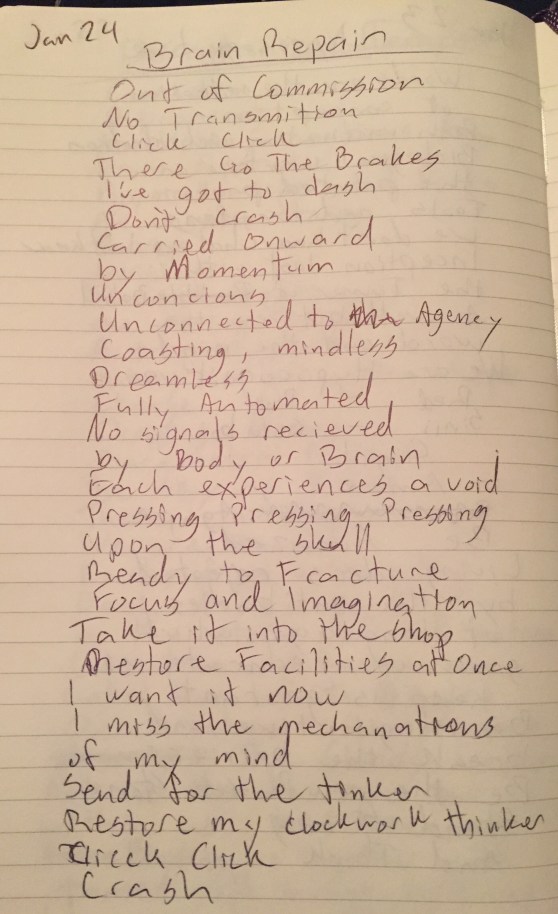 Jan 24
Brain Repair
Out of Commission
No Transmition
Click Click
There Go The Brakes
I've got to dash
Don't Crash
Carried Onward
by Momentum
Unconcious
Unconnected to Agency
Coasting, mindless
Dreamless
Fully Automated,
No signals recieved
by Body or Brain
Each experiences a void
Pressing Pressing Pressing
Upon the skull
Ready to Fracture
Focus and Imagination
Take it into the shop
Restore Facilities at Once
I want it now
I miss the mechanations
of my mind
Send for the tinker
Restore my clockwork thinker
Click
Crash